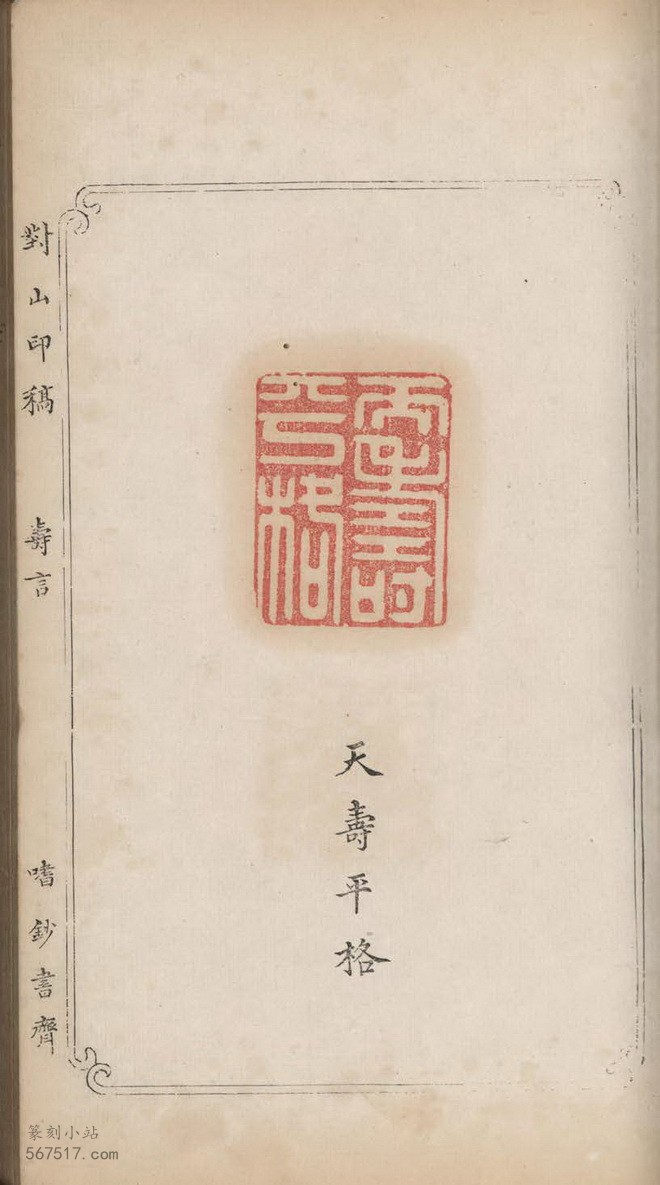 天壽平格
天壽平格
對山印稿 壽言 嗜鈔書齋
篆刻小站
567517.com